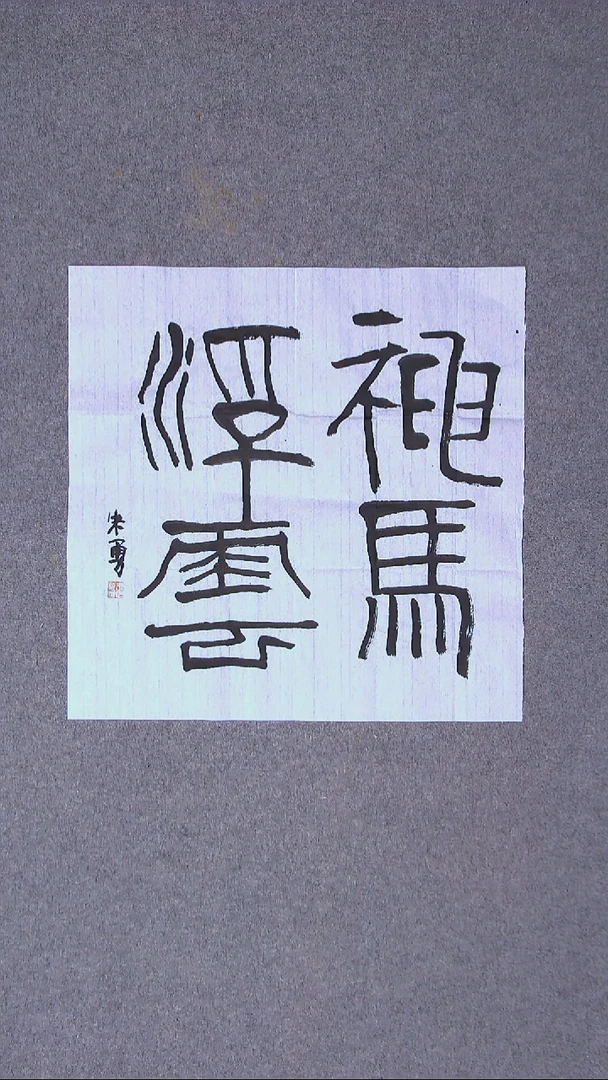 神馬
浮雲
朱勇